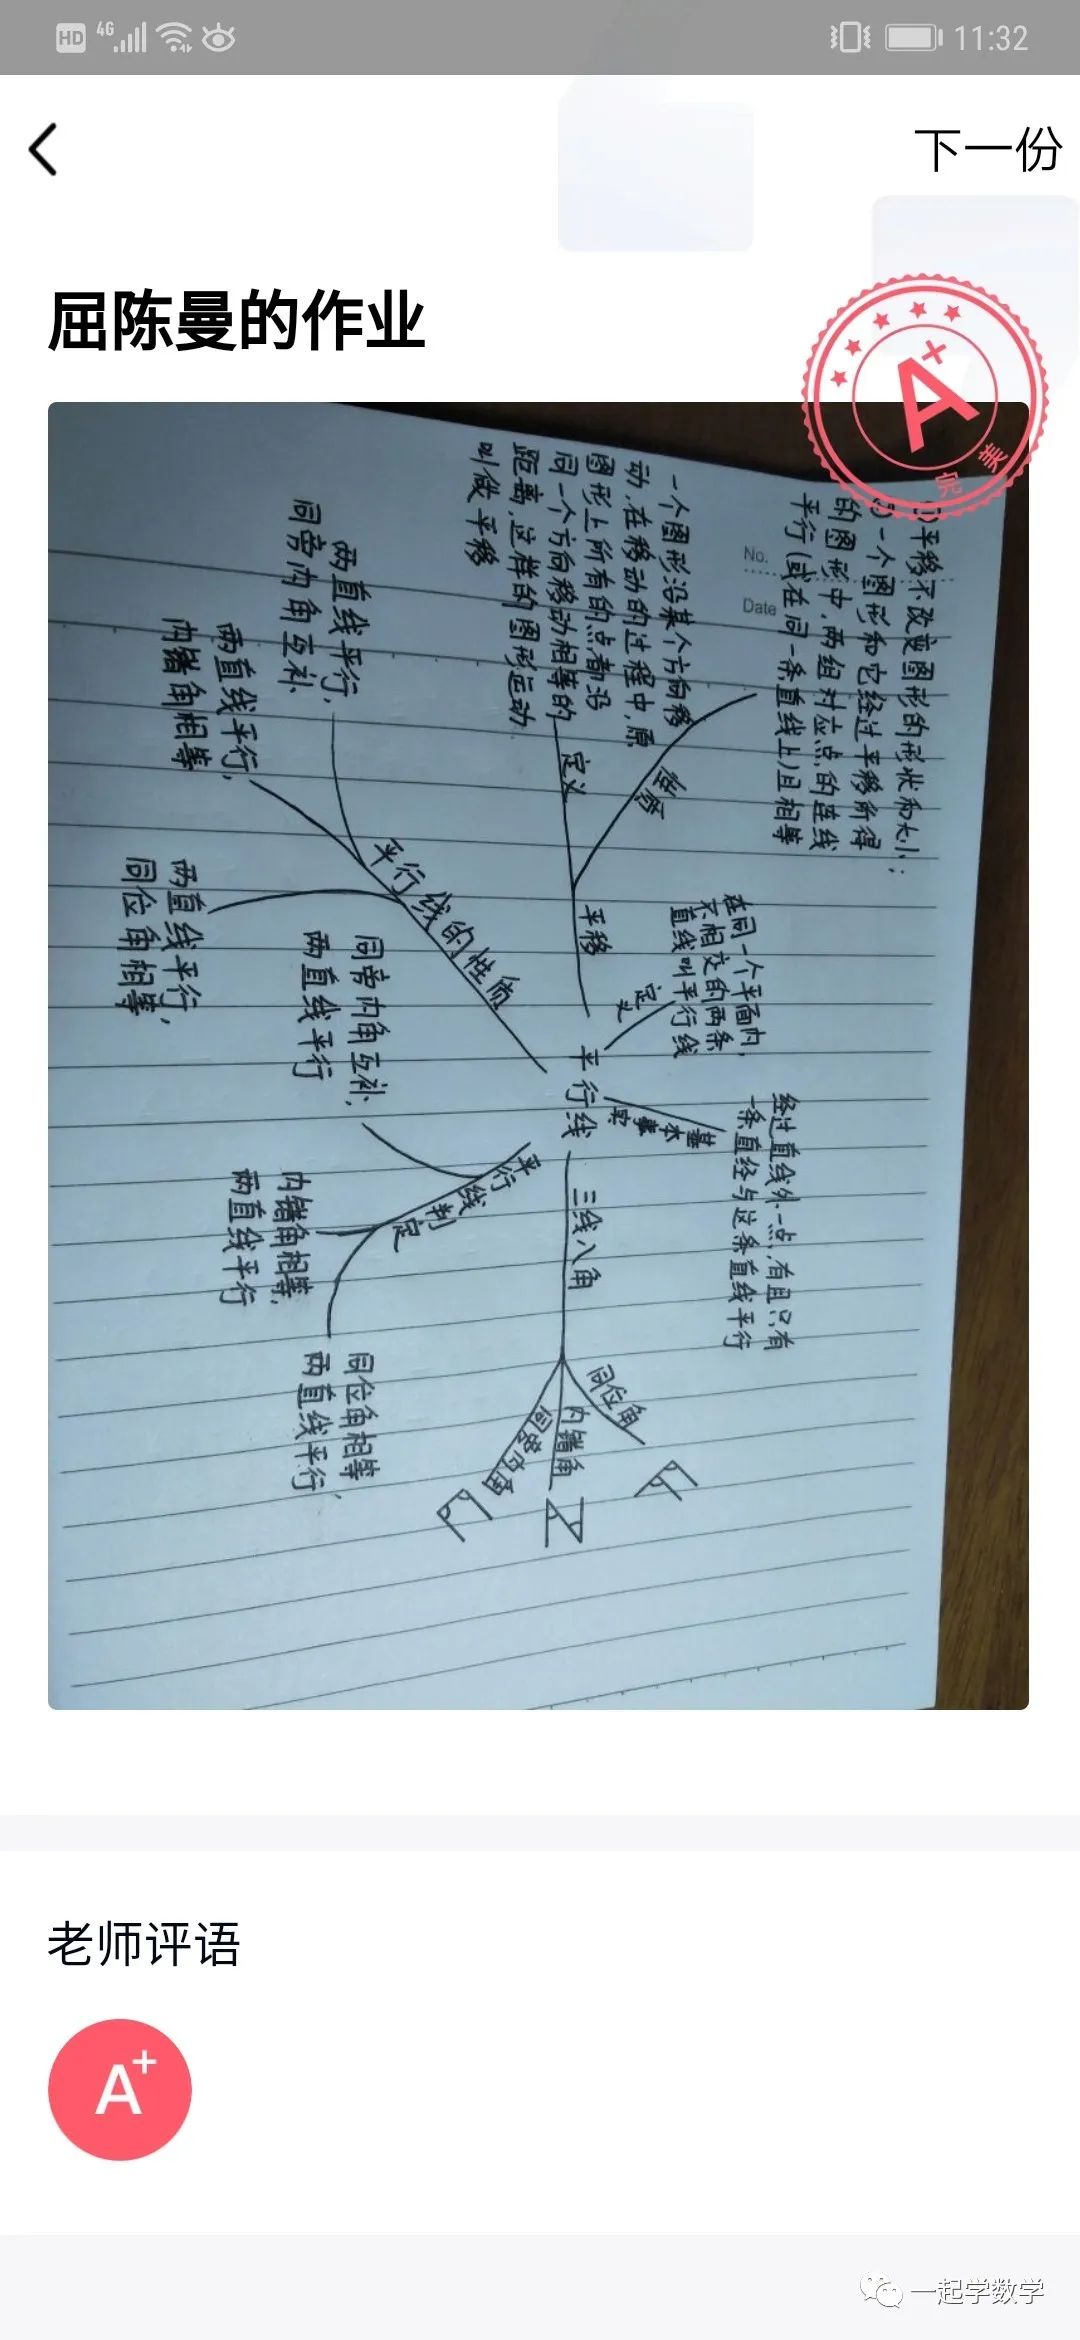 HD 4G 11:32
下一份
屈陈曼的作业
A+
完美
平移不改变图形的形状和大小;
一个图形和它经过平移所得
的图形中,两组对应点的连线
平行(或在同一条直线上)且相等
No.
Date
一个图形沿某个方向移
动,在移动的过程中,原
图形上所有的点都沿
同一个方向移动相等的
距离,这样的图形运动
叫做平移
定义
平移
在同一个平面内,
不相交的两条
直线叫平行线
定义
平行线
基本事实
经过直线外一点,有且只有
一条直经与这条直线平行
三线八角
同位角
内错角
同旁内角
平行线的性质
两直线平行,
同旁内角互补
两直线平行,
内错角相等
两直线平行,
同位角相等
平行线判定
同旁内角互补,
两直线平行
内错角相等,
两直线平行
同位角相等
两直线平行,
老师评语
A+
一起学数学